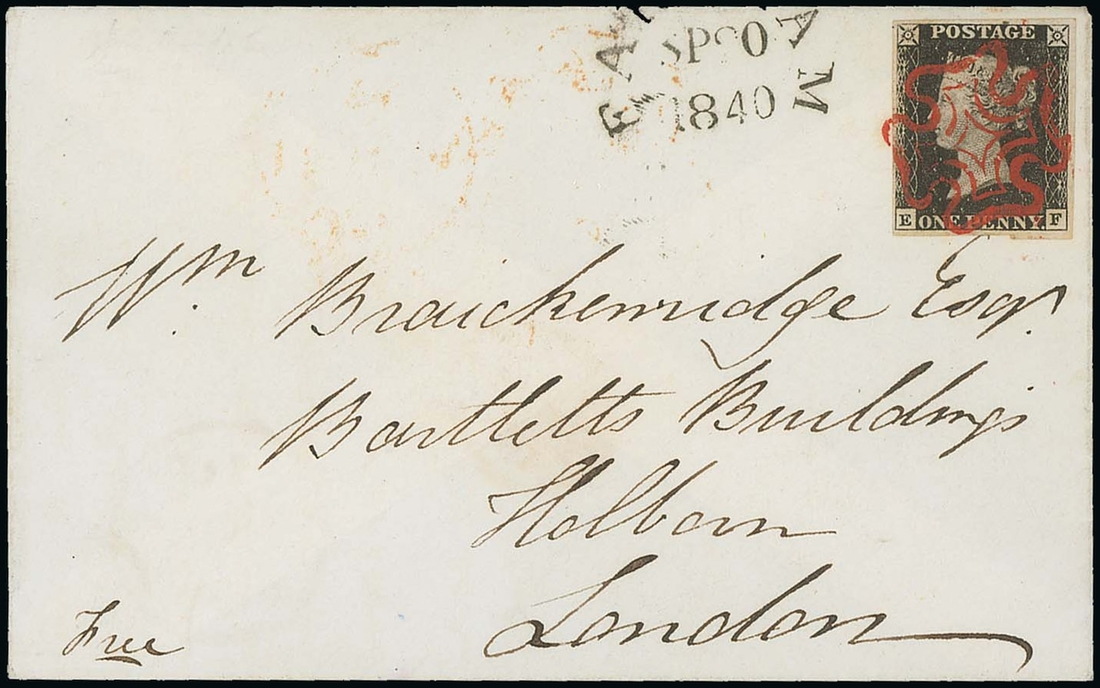 1840
POSTAGE
E ONE PENNY. F
Wm Braickenridge Esqr.
Bartletts Buildings
Holborn
London
Free